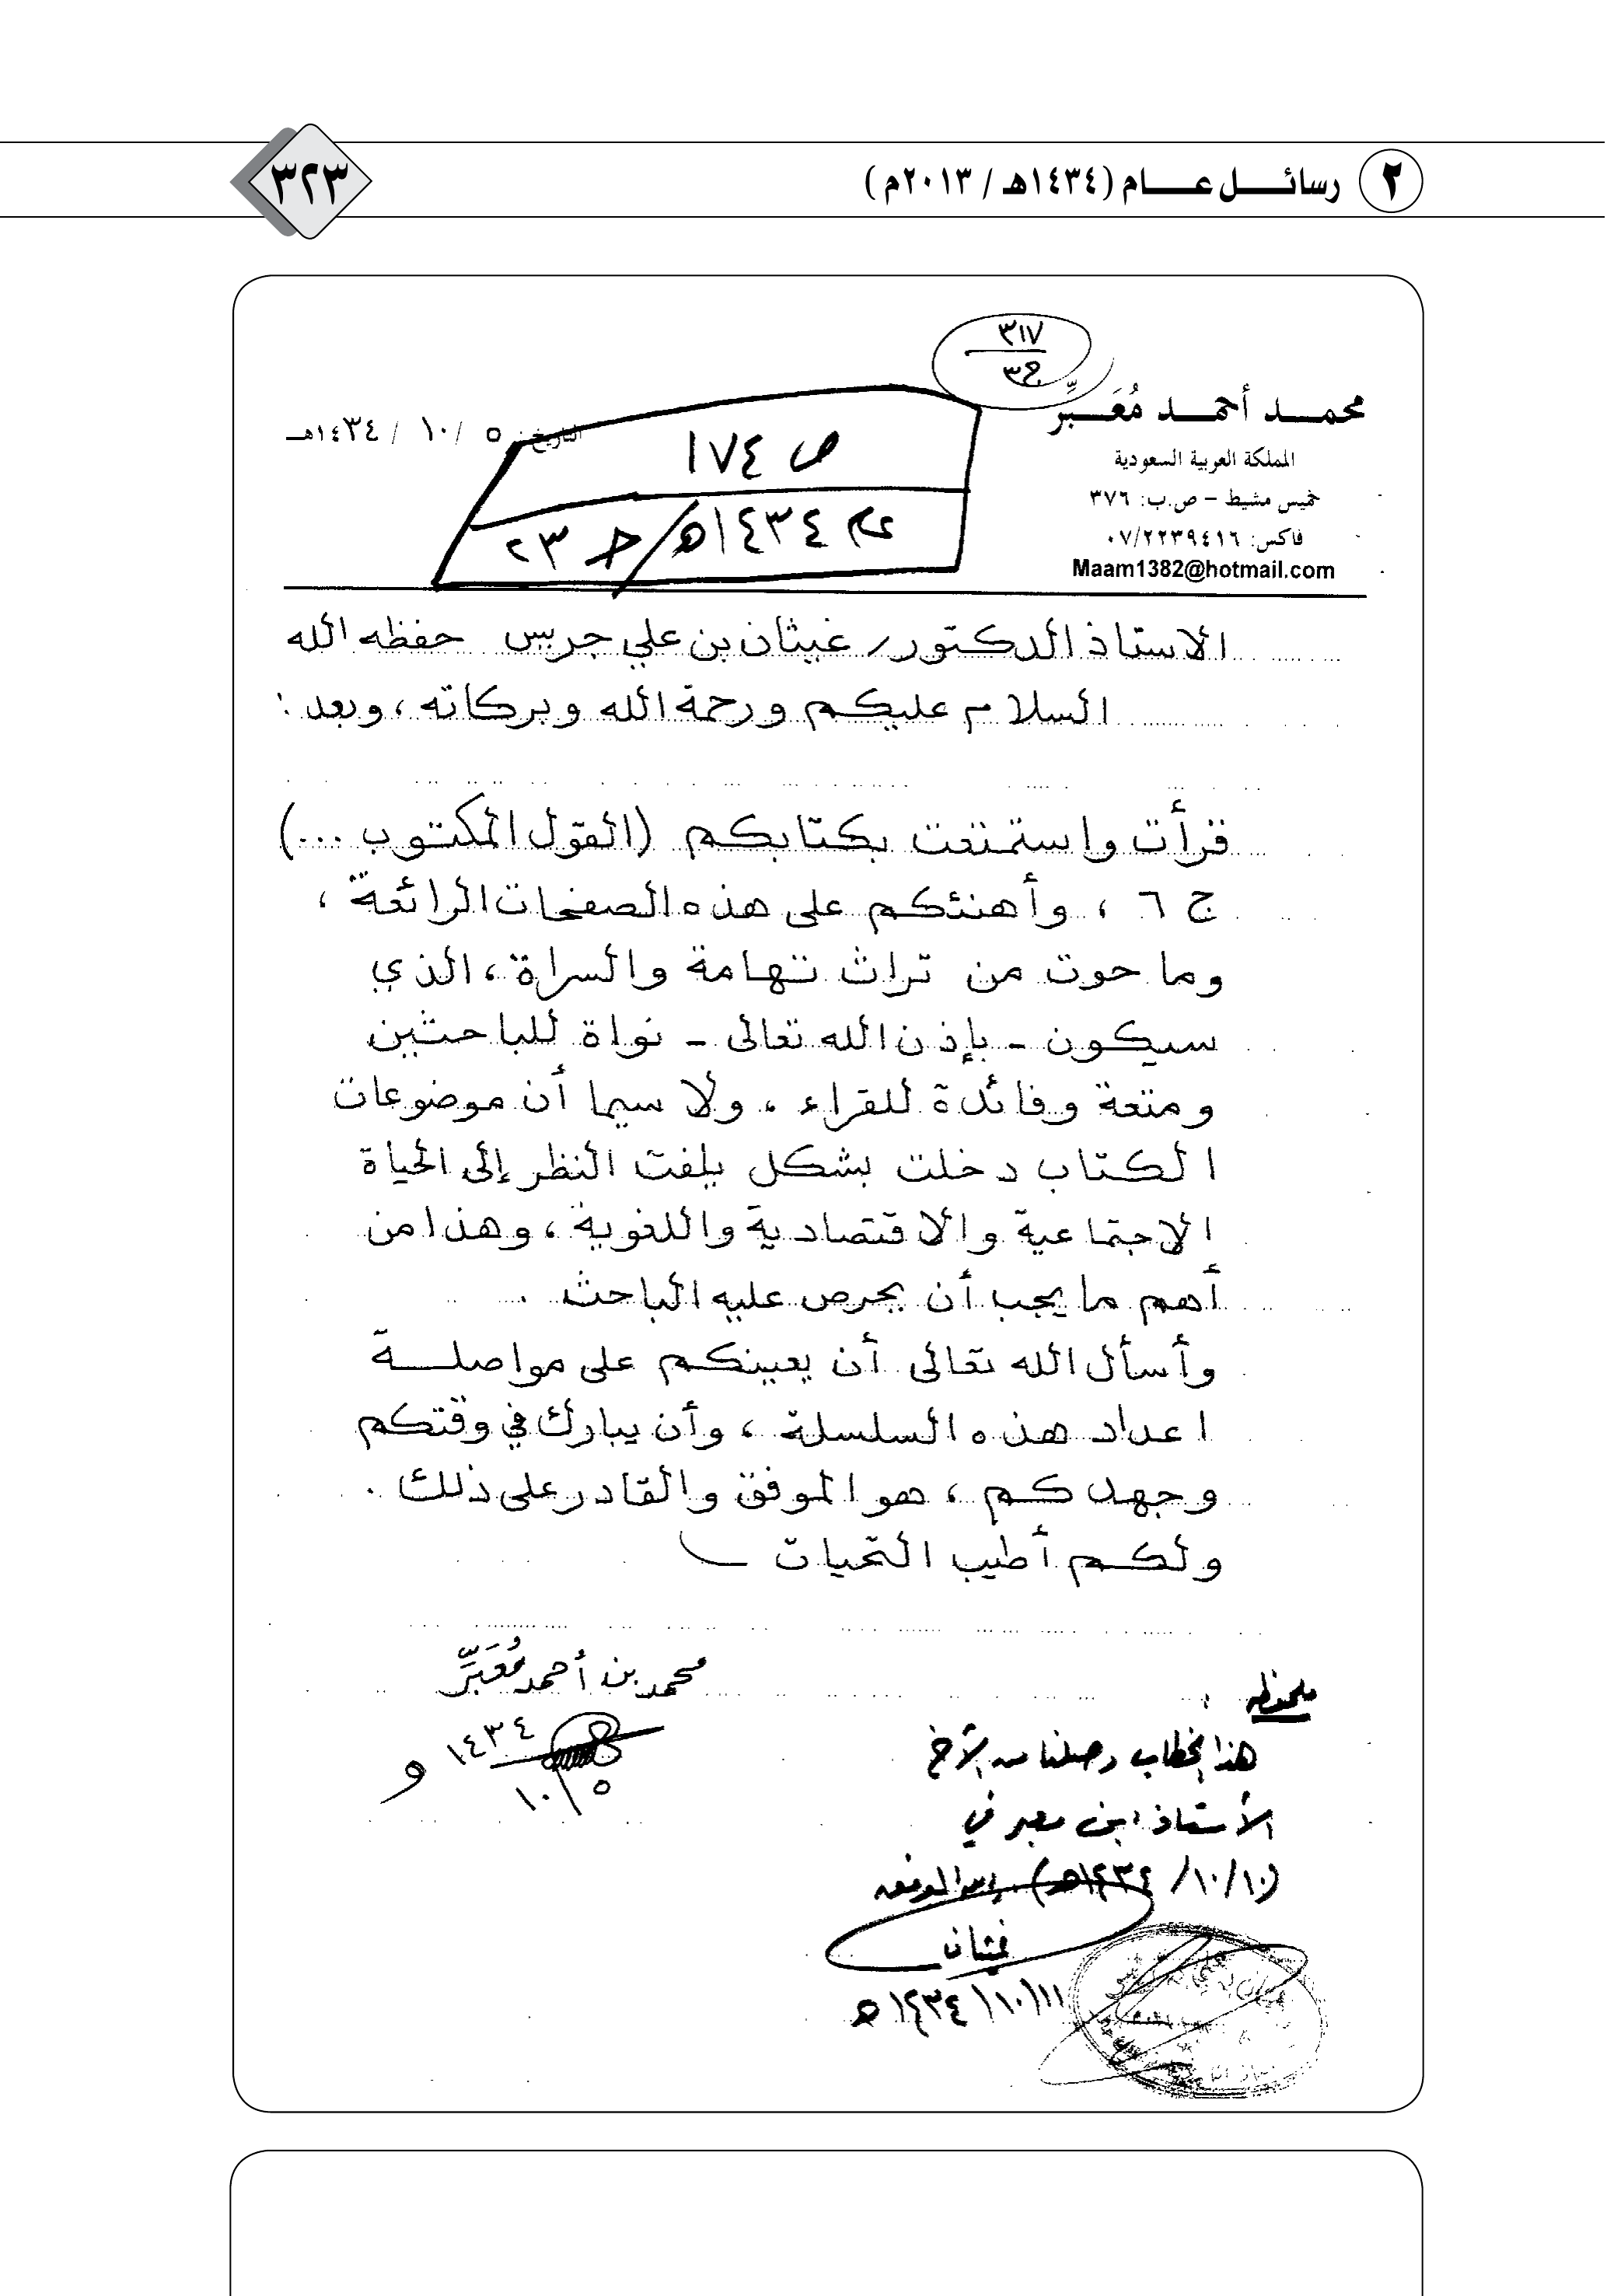 ٢ رسائل عام (١٤٣٤هـ / ٢٠١٣م)
٣٢٣
٣١٧
ج٣
محمد أحمد مُعَبِّر
المملكة العربية السعودية
خميس مشيط – ص.ب: ٣٧٦
فاكس: ٠٧/٢٢٣٩٤١٦
Maam1382@hotmail.com
التاريخ: ٥ / ١٠ / ١٤٣٤هـ
ص ١٧٤
عام ١٤٣٤هـ / ج ٢٣
الاستاذ الدكتور/ غيثان بن علي جريس حفظه الله
السلام عليكم ورحمة الله وبركاته، وبعد:
قرأت واستمتعت بكتابكم (القول المكتوب ...)
ج ٦ ، وأهنئكم على هذه الصفحات الرائعة ،
وما حوت من تراث تهامة والسراة، الذي
سيكون - بإذن الله تعالى - نواة للباحثين
ومتعة وفائدة للقراء ، ولا سيما أن موضوعات
الكتاب دخلت بشكل يلفت النظر إلى الحياة
الاجتماعية والاقتصادية واللغوية ، وهذا من
أهم ما يجب أن يحرص عليه الباحث .
وأسأل الله تعالى أن يعينكم على مواصلة
اعداد هذه السلسلة ، وأن يبارك في وقتكم
وجهدكم ، هو الموفق والقادر على ذلك .
ولكم أطيب التحيات
محمد بن أحمد مُعَبِّر
١٤٣٤
٥/١٠
ملحوظه :
هذا الخطاب وصلنا من الأخ
الأستاذ ابن معبر في
(١٠/١٠/ ١٤٣٤هـ). والله الموفق
غيثان
١١/١٠/١٤٣٤هـ